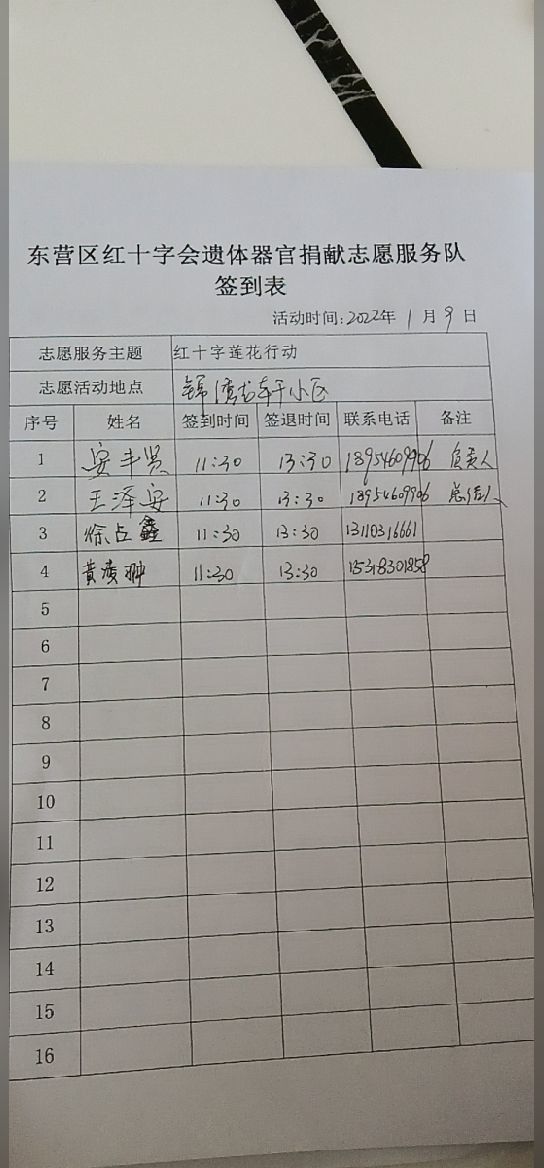 东营区红十字会遗体器官捐献志愿服务队
签到表
活动时间:2022年 1 月 9 日
志愿服务主题 红十字莲花行动
志愿活动地点 锦 小区
序号 姓名 签到时间 签退时间 联系电话 备注
1 安丰贤 11:30 13:30 18954609906 负责人
2 王泽安 11:30 13:30 18954609906 总结人
3 徐占鑫 11:30 13:30 13110316661
4 黄凌翀 11:30 13:30 15318301858
5
6
7
8
9
10
11
12
13
14
15
16